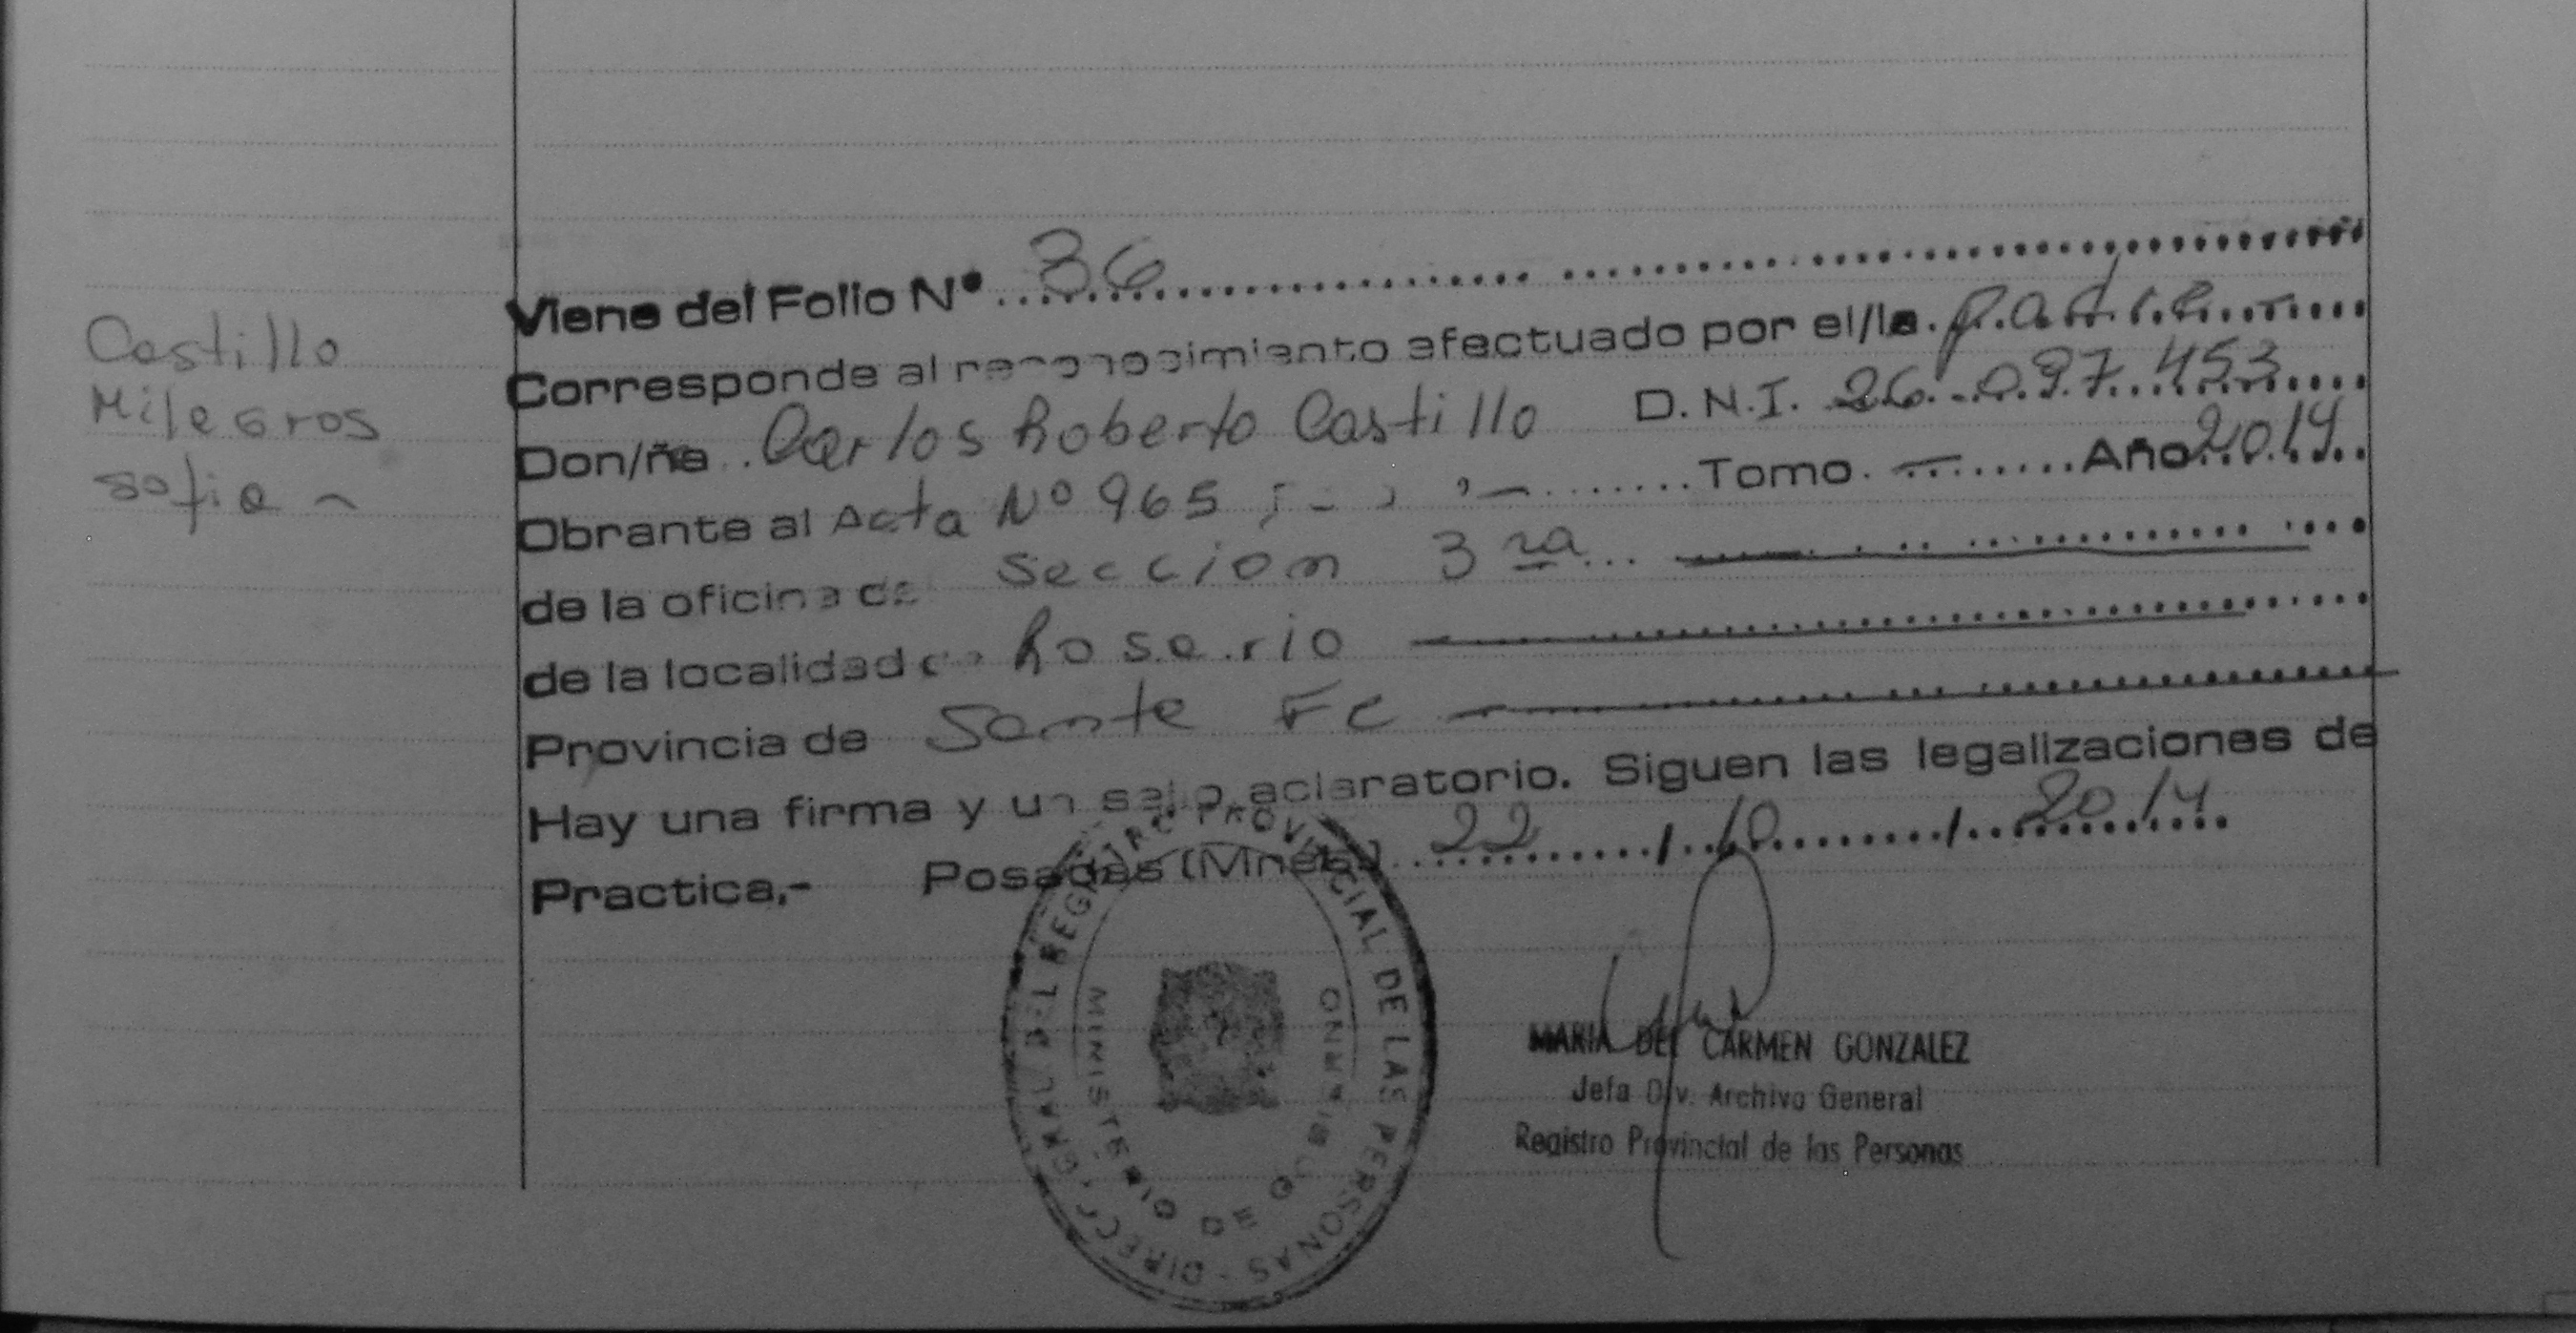 Viene del Folio Nº 36
Corresponde al reconocimiento efectuado por el/la padre
Don/ña Carlos Roberto Castillo D.N.I. 26.097.453
Obrante al Acta Nº 965 ;- , ,- Tomo. — Año 2014
de la oficina de Seccion 3ra
de la localidad de Rosario
Provincia de Santa Fe
Hay una firma y un sello aclaratorio. Siguen las legalizaciones de
Practica,- Posadas (Mnes.) 22/10/2014
Castillo
Milagros
Sofia -
DIRECC. GRAL. DEL REGISTRO PROVINCIAL DE LAS PERSONAS -
MINISTERIO DE GOBIERNO
MARIA DEL CARMEN GONZALEZ
Jefa Div. Archivo General
Registro Provincial de las Personas